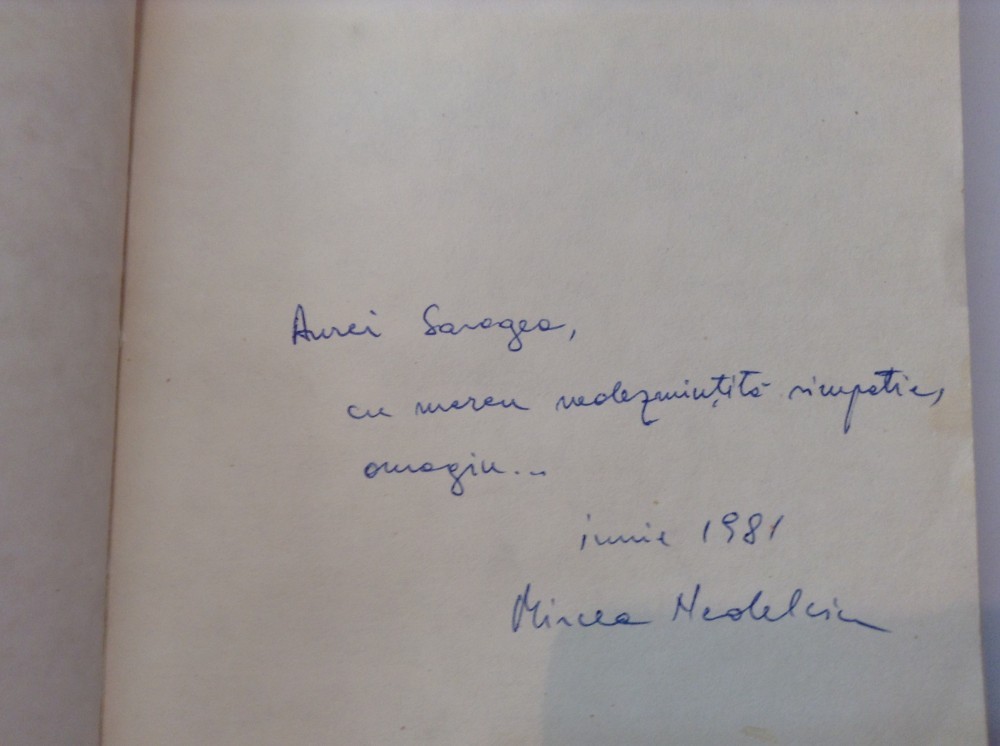 Aurei Saragea,
cu mereu nedezmințită simpatie,
omagiu...
iunie 1981
Mircea Nedelciu